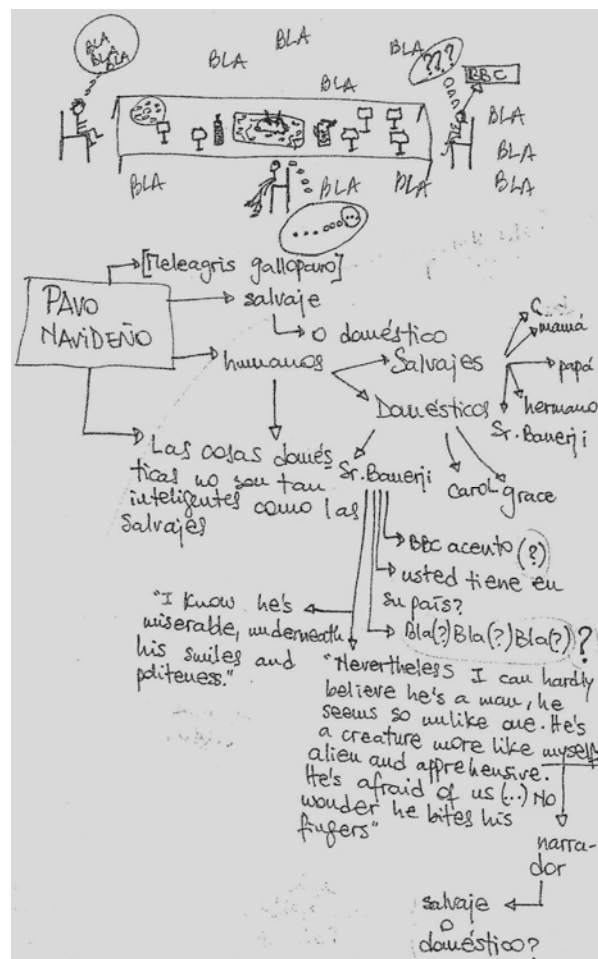 BLA
BLA
BLA
BLA
BLA
BLA
BLA
BLA
???
BBC
BLA
BLA
BLA
BLA
BLA
BLA
BLA
[Meleagris gallopavo]
PAVO
NAVIDEÑO
salvaje
o doméstico
humanos
Salvajes
mamá
papá
hermano
Sr. Banerji
Domésticos
Las cosas domés
ticas no son tan
inteligentes como las
salvajes
Sr. Banerji
carol
grace
BBC acento (?)
usted tiene en
su país?
Bla(?) Bla(?) Bla(?) ?
"I know he's
miserable, underneath
his smiles and
politeness."
"Nevertheless I can hardly
believe he's a man, he
seems so unlike one. He's
a creature more like myself
alien and apprehensive.
He's afraid of us (..) No
wonder he bites his
fingers"
narra-
dor
salvaje
o
doméstico?